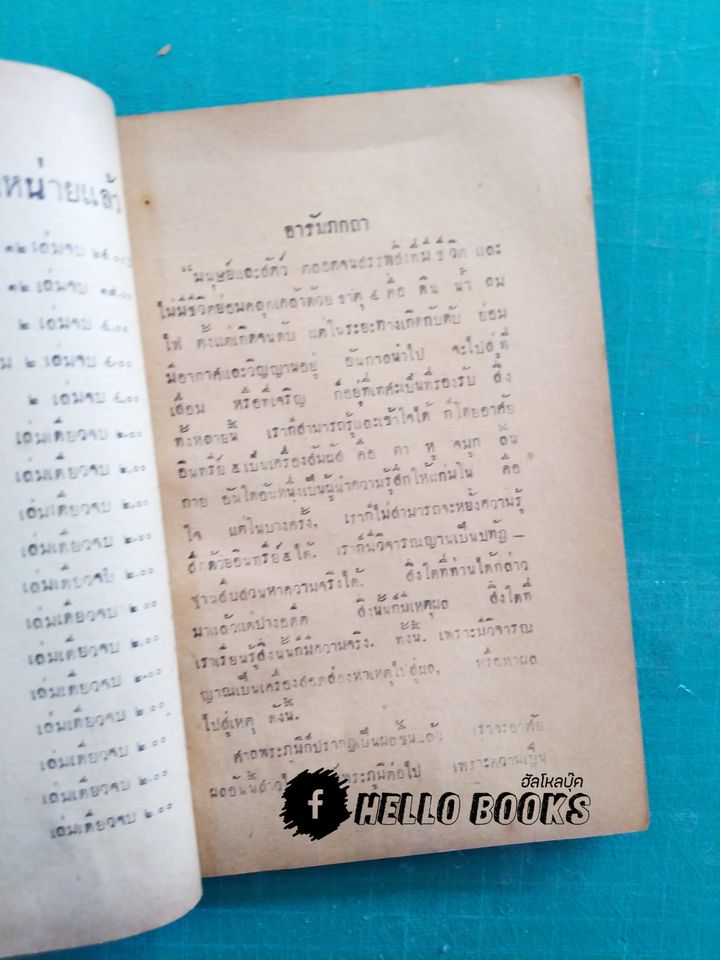 หน่ายแล้ว
๑๒ เล่มจบ ๒๔.๐๐
๑๒ เล่มจบ ๑๘.๐๐
๒ เล่มจบ ๔.๐๐
๒ เล่มจบ ๔.๐๐
๒ เล่มจบ ๔.๐๐
เล่มเดียวจบ ๒.๐๐
เล่มเดียวจบ ๒.๐๐
เล่มเดียวจบ ๒.๐๐
เล่มเดียวจบ ๒.๐๐
เล่มเดียวจบ ๒.๐๐
เล่มเดียวจบ ๒.๐๐
เล่มเดียวจบ ๒.๐๐
เล่มเดียวจบ ๒.๐๐
เล่มเดียวจบ ๒.๐๐
เล่มเดียวจบ ๒.๐๐
เล่มเดียวจบ ๒.๐๐
เล่มเดียวจบ ๒.๐๐
อารัมภกถา
"มนุษย์และสัตว์ ตลอดจนสรรพสิ่งที่มีชีวิต และ
ไม่มีชีวิตย่อมคลุกเคล้าด้วย ธาตุ ๔ คือ ดิน น้ำ ลม
ไฟ ตั้งแต่เกิดจนดับ แต่ในระยะทางเกิดกับดับ ย่อม
มีอากาศและวิญญานอยู่ อันกาลนำไป จะไปสู่ที่
เสื่อม หรือที่เจริญ ก็อยู่ที่เทศะเป็นที่รองรับ สิ่ง
ทั้งหลายนี้ เราก็สามารถรู้และเข้าใจได้ ก็โดยอาศัย
อินทรีย์ ๕ เป็นเครื่องสัมผัส คือ ตา หู จมูก ลิ้น
กาย อันใดอันหนึ่งเป็นผู้นำความรู้สึกให้แก่มโน คือ
ใจ แต่ในบางครั้ง, เราก็ไม่สามารถจะหยั่งความรู้
สึกด้วยอินทรีย์๕ได้. เราก็มีวิจารณญานเป็นบทัฏ –
ฐานสืบสวนหาความจริงได้. สิ่งใดที่ท่านได้กล่าว
มาแล้วแต่ปางอดีต สิ่งนั้นก็มีเหตุผล สิ่งใดที่
เราเรียนรู้สิ่งนั้นก็มีความจริง. ทั้งนี้. เพราะมีวิจารณ
ญาณเป็นเครื่องสอดส่องหาเหตุไปสู่ผล, หรือหาผล
ไปสู่เหตุ ดังนี้.
ศาลพระภูมิก็ปรากฏเป็นผลขึ้นแล้ว เราจะอาศัย
ผลอันนี้สาว พระภูมิต่อไป เพราะความเป็น
ฮัลโหลบุ๊ค
f HELLO BOOKS